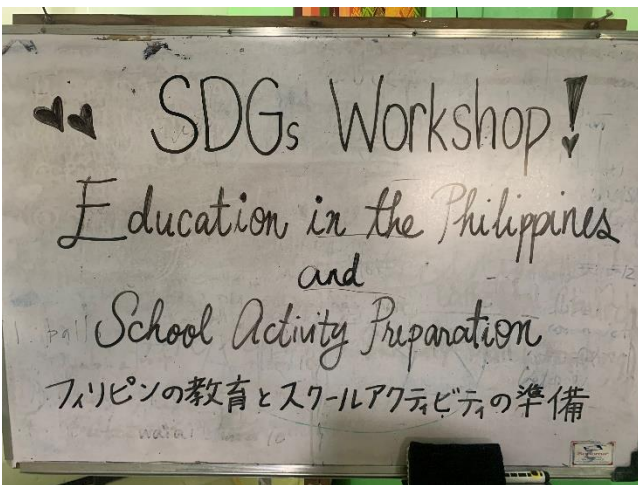 SDGs Workshop!
Education in the Philippines
and
School Activity Preparation
フィリピンの教育とスクールアクティビティの準備